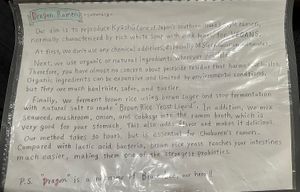 Dragon Ramen
Our aim is to reproduce Kyushu (one of Japan's southern isles)-style ramen,
normally characterized by rich white soup with pork bones for VEGANS.
At first, we don't use any chemical additives, especially M.S.G.
Next, we use organic or natural ingredients wherever possible.
Therefore, you have almost no concern about pesticide residue that harms health.
Organic ingredients tend to be expensive and limited by environmental conditions,
but they are much healthier, safer, and tastier.
Finally, we ferment brown rice using brown sugar and stop fermentation
with natural salt to make "Brown Rice Yeast Liquid". In addition, we mix
seaweed, mushroom, onion, and cabbage into the ramen broth, which is
very good for your stomach. This also adds flavor and makes it delicious.
Our method takes 20 hours, but is essential for Chabuzen's ramen.
Compared with lactic acid bacteria, brown rice yeast reaches your intestines
much easier, making them one of the strongest probiotics.
P.S. "Dragon" is a